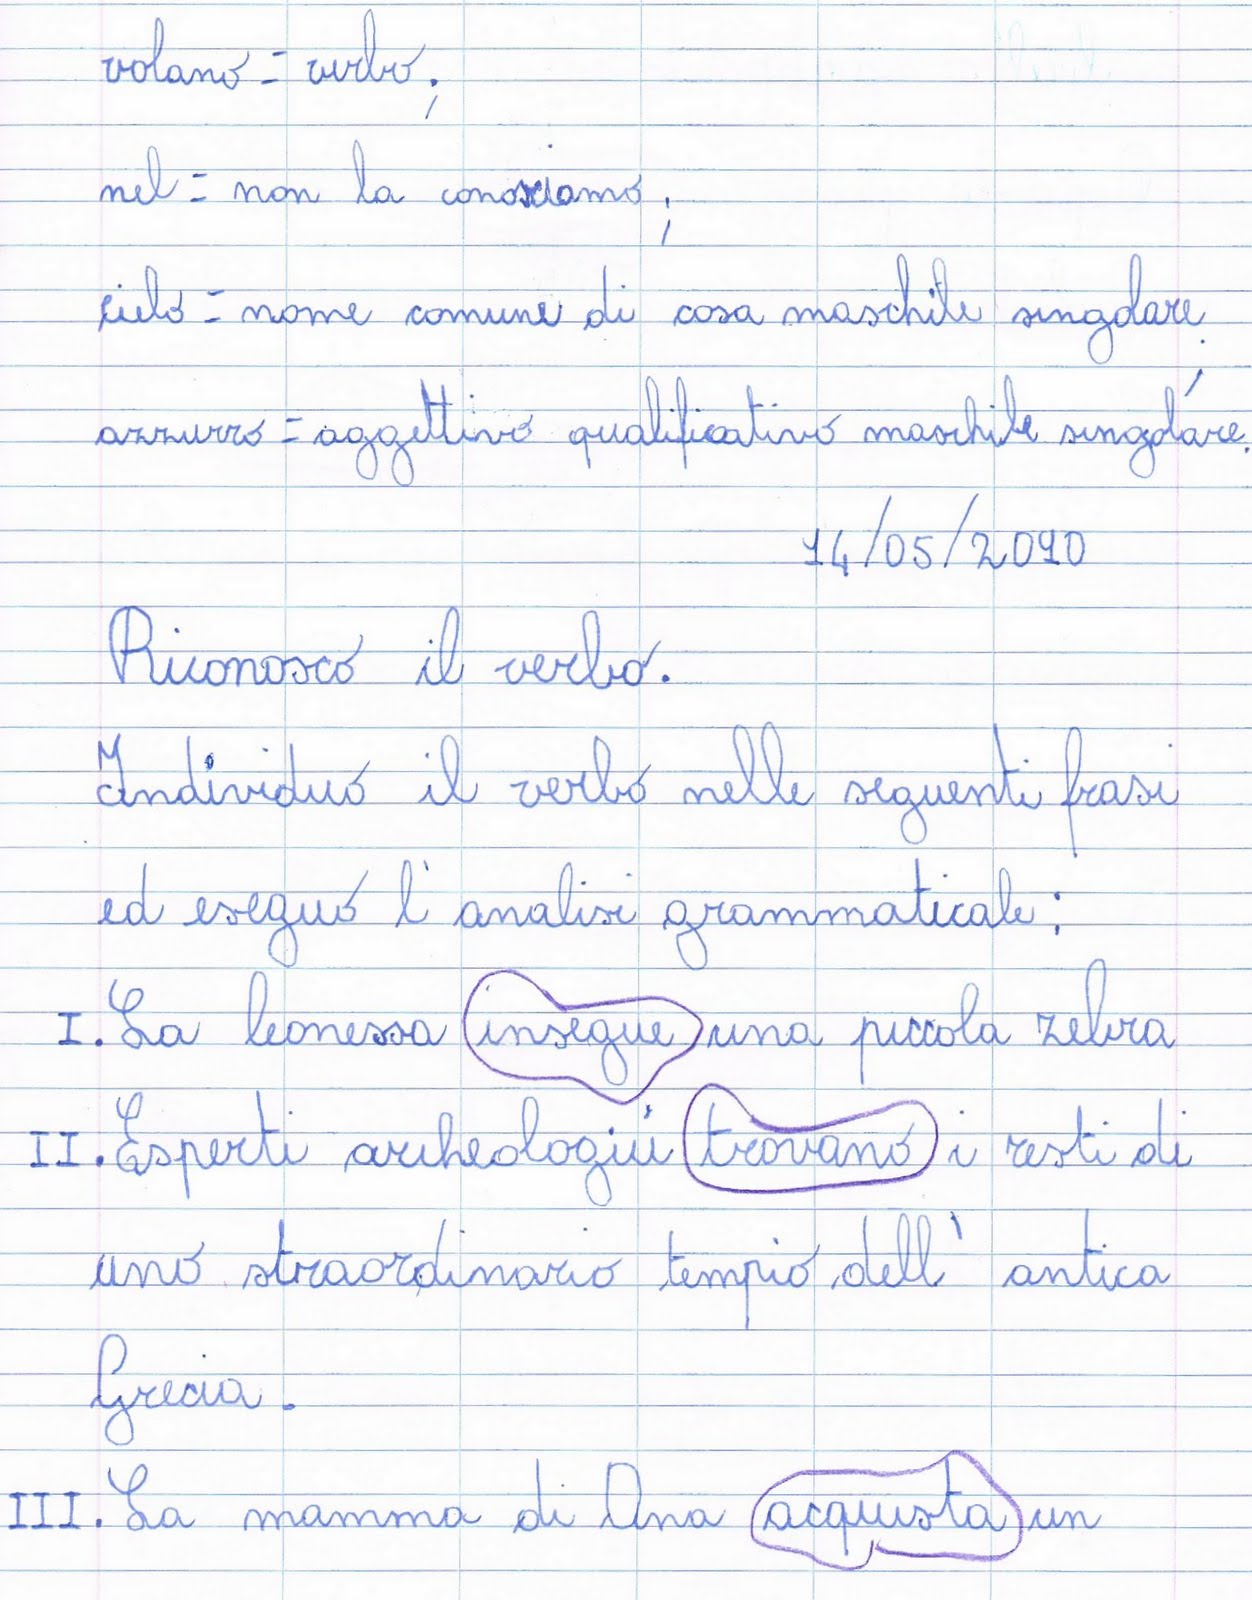 volano = verbo;
nel = non la conosciamo;
cielo = nome comune di cosa maschile singolare;
azzurro = aggettivo qualificativo maschile singolare.
14/05/2010
Riconosco il verbo.
Individuo il verbo nelle seguenti frasi
ed eseguo l'analisi grammaticale:
I. La leonessa insegue una piccola zebra
II. Esperti archeologici trovano i resti di
uno straordinario tempio dell'antica
Grecia.
III. La mamma di Ana acquista un